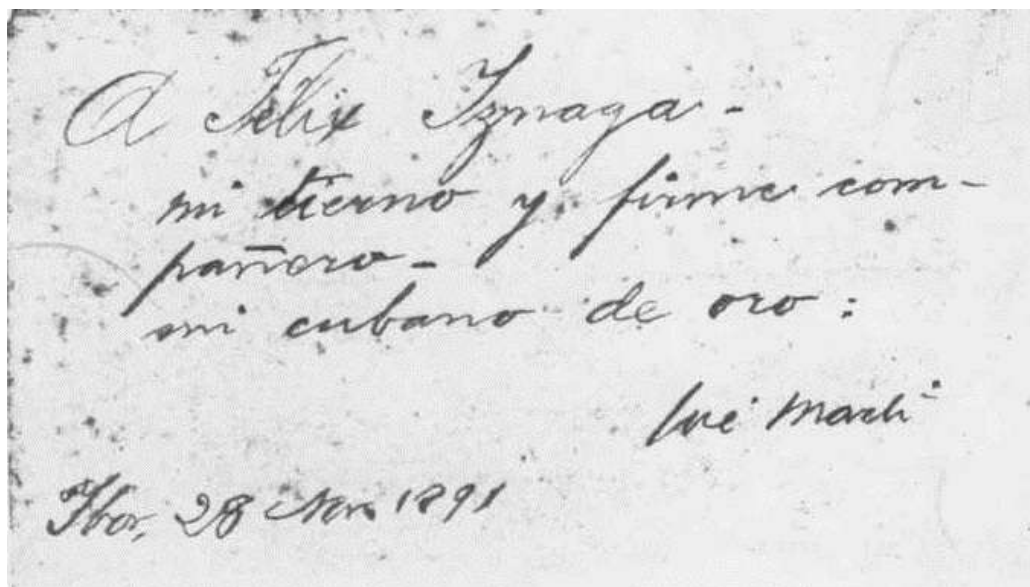 A Félix Iznaga -
mi tierno y firme com-
pañero -
mi cubano de oro:
José Martí
Ibor, 28 Nov. 1891